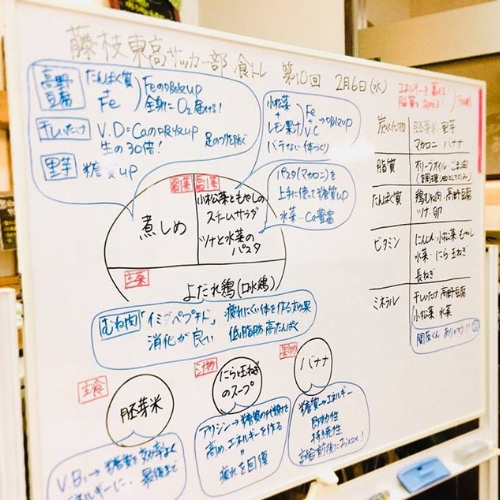 藤枝東高サッカー部 食トレ 第10回 2月6日(水)
高野豆腐
たんぱく質
+
Fe
Feの吸収up
全身にO₂届ける!
干しいたけ
V.D=Caの吸収up
生の30倍!
足のつり防ぐ
里芋
糖質up
小松菜
+
レモン果汁
Fe
+
V.C
吸収up
バテない体づくり
パスタ(マカロニ)を
上手に使って糖質up
水菜→Ca豊富
副菜
副菜
煮しめ
小松菜ともやしの
スチームサラダ
ツナと水菜の
パスタ
主菜
よだれ鶏(口水鶏)
むね肉
「イミダペプチド」
疲れにくい体を作る効果
消化が良い
低脂肪高たんぱく
主食
胚芽米
V.B₁→糖質を
エネルギーに、
最後まで
汁物
にらと玉ねぎ
のスープ
アリシン→糖質の代謝
高め、エネルギーを作る
疲れを回復
果物
バナナ
糖質→エネルギー
即効性
持続性
試合前後におススメ!
炭水化物
胚芽米 里芋
マカロニ バナナ
脂質
オリーブオイル ごま油
たんぱく質
鶏むね肉 高野豆腐
ツナ 卵
ビタミン
にんじん 小松菜 もやし
水菜 にら 玉ねぎ
長ねぎ
ミネラル
干しいたけ 高野豆腐
小松菜 水菜